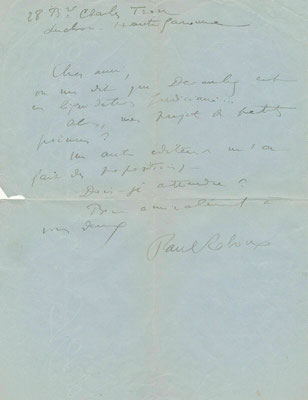 28 Bd Charles Tron
Luchon. Haute Garonne
Cher ami,
on me dit que Darantière est
en liquidation judiciaire...
Alors, mes projets de petits
poèmes ?
Un autre éditeur m'en
fait des propositions...
Dois-je attendre ?
Bien amicalement à
vous deux
Paul Reboux